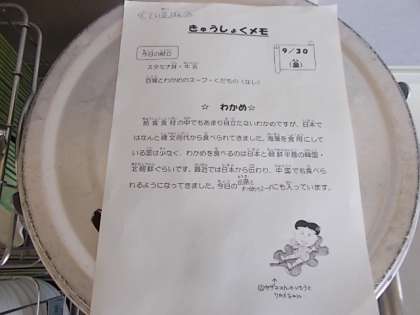 きゅうしょくメモ
9/30
(金)
今日の献立
スタミナ丼・牛乳
豆腐とわかめのスープ・くだもの(なし)
☆ わかめ ☆
給食食材の中でもあまり目立たないわかめですが、日本で
はなんと縄文時代から食べられてきました。海藻を食用にして
いる国は少なく、わかめを食べるのは日本と朝鮮半島の韓国・
北朝鮮ぐらいです。最近では日本から伝わり、中国でも食べら
れるようになってきました。今日の
にも入っています。